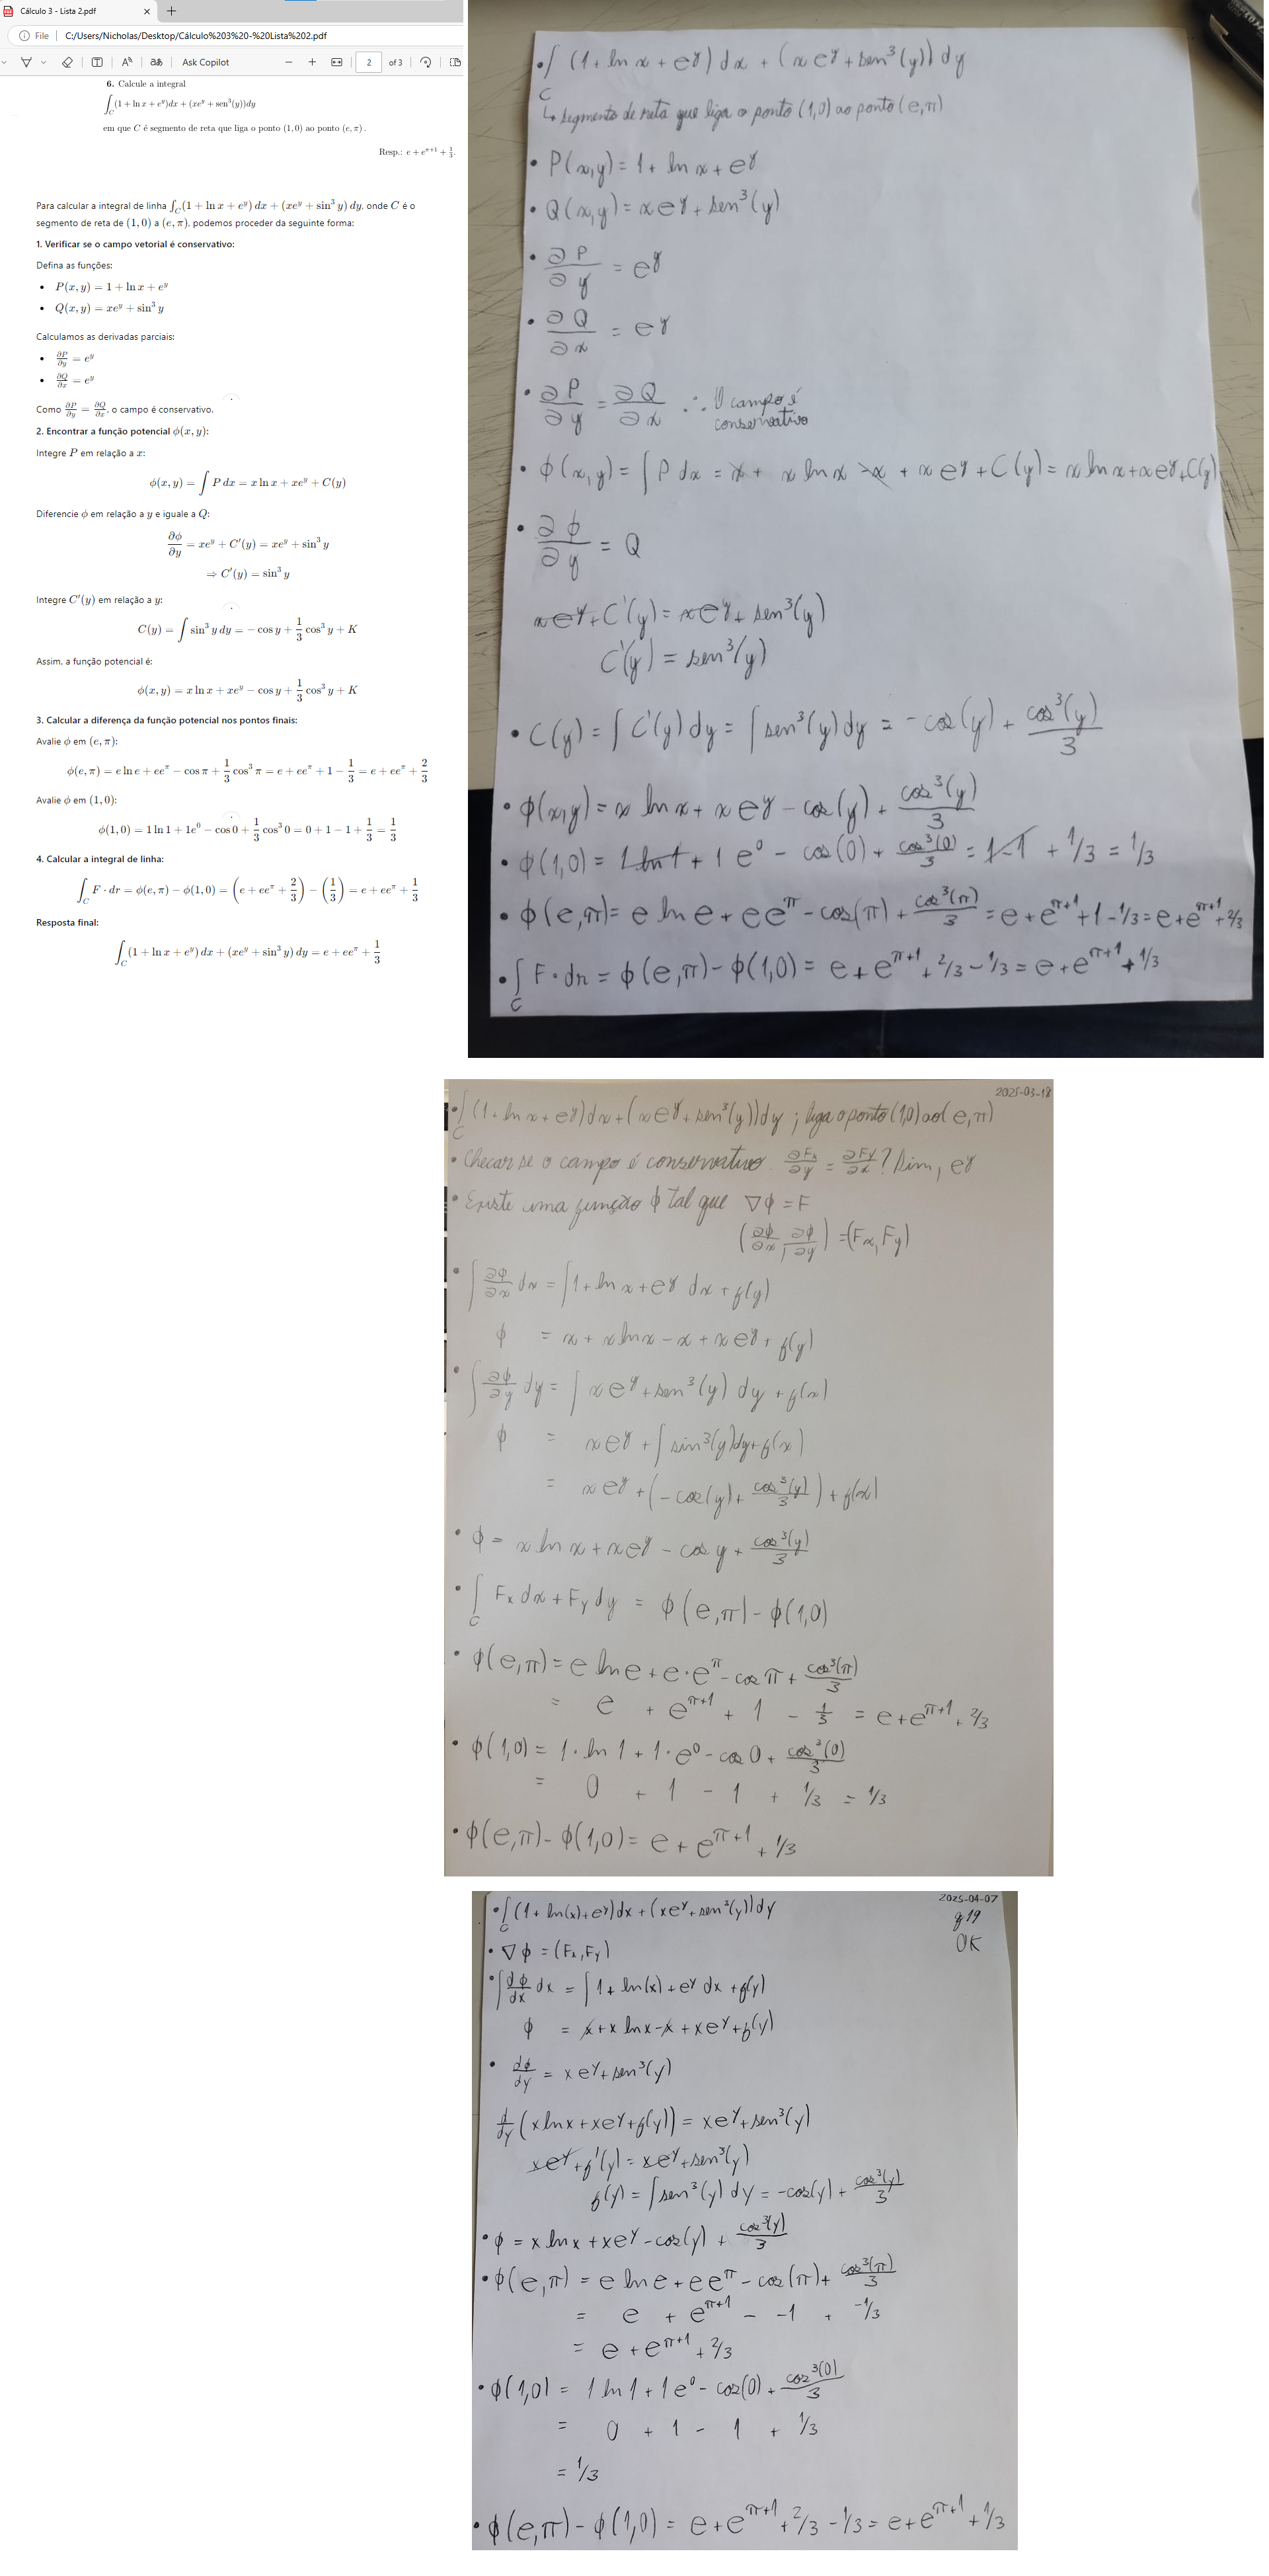 Cálculo 3 - Lista 2.pdf
File C:/Users/Nicholas/Desktop/Cálculo%203%20-%20Lista%202.pdf
Ask Copilot 2 of 3
6. Calcule a integral
∫_C (1 + ln x + e^y)dx + (xe^y + sen³(y))dy
em que C é segmento de reta que liga o ponto (1, 0) ao ponto (e, π).
Resp.: e + e^{π+1} + 1/3.
Para calcular a integral de linha ∫_C (1 + ln x + e^y) dx + (xe^y + sin³ y) dy, onde C é o
segmento de reta de (1, 0) a (e, π), podemos proceder da seguinte forma:
1. Verificar se o campo vetorial é conservativo:
Defina as funções:
• P(x, y) = 1 + ln x + e^y
• Q(x, y) = xe^y + sin³ y
Calculamos as derivadas parciais:
• ∂P/∂y = e^y
• ∂Q/∂x = e^y
Como ∂P/∂y = ∂Q/∂x, o campo é conservativo.
2. Encontrar a função potencial ϕ(x, y):
Integre P em relação a x:
ϕ(x, y) = ∫ P dx = x ln x + xe^y + C(y)
Diferencie ϕ em relação a y e iguale a Q:
∂ϕ/∂y = xe^y + C'(y) = xe^y + sin³ y
⇒ C'(y) = sin³ y
Integre C'(y) em relação a y:
C(y) = ∫ sin³ y dy = − cos y + 1/3 cos³ y + K
Assim, a função potencial é:
ϕ(x, y) = x ln x + xe^y − cos y + 1/3 cos³ y + K
3. Calcular a diferença da função potencial nos pontos finais:
Avalie ϕ em (e, π):
ϕ(e, π) = e ln e + ee^π − cos π + 1/3 cos³ π = e + ee^π + 1 − 1/3 = e + ee^π + 2/3
Avalie ϕ em (1, 0):
ϕ(1, 0) = 1 ln 1 + 1e^0 − cos 0 + 1/3 cos³ 0 = 0 + 1 − 1 + 1/3 = 1/3
4. Calcular a integral de linha:
∫_C F · dr = ϕ(e, π) − ϕ(1, 0) = (e + ee^π + 2/3) − (1/3) = e + ee^π + 1/3
Resposta final:
∫_C (1 + ln x + e^y) dx + (xe^y + sin³ y) dy = e + ee^π + 1/3
• ∫_C (1 + ln x + e^y) dx + (x e^y + sen³(y)) dy
↳ segmento de reta que liga o ponto (1,0) ao ponto (e,π)
• P(x,y) = 1 + ln x + e^y
• Q(x,y) = x e^y + sen³(y)
• ∂P/∂y = e^y
• ∂Q/∂x = e^y
• ∂P/∂y = ∂Q/∂x ∴ O campo é
conservativo
• ϕ(x,y) = ∫ P dx = x + x ln x - x + x e^y + C(y) = x ln x + x e^y + C(y)
• ∂ϕ/∂y = Q
x e^y + C'(y) = x e^y + sen³(y)
C'(y) = sen³(y)
• C(y) = ∫ C'(y) dy = ∫ sen³(y) dy = - cos(y) + cos³(y)/3
• ϕ(x,y) = x ln x + x e^y - cos(y) + cos³(y)/3
• ϕ(1,0) = 1 ln 1 + 1 e^0 - cos(0) + cos³(0)/3 = 1 - 1 + 1/3 = 1/3
• ϕ(e,π) = e ln e + e e^π - cos(π) + cos³(π)/3 = e + e^{π+1} + 1 - 1/3 = e + e^{π+1} + 2/3
• ∫_C F · dr = ϕ(e,π) - ϕ(1,0) = e + e^{π+1} + 2/3 - 1/3 = e + e^{π+1} + 1/3
2025-03-18
• ∫_C (1 + ln x + e^y) dx + (x e^y + sen³(y)) dy ; liga o ponto (1,0) ao (e,π)
• Checar se o campo é conservativo. ∂Fx/∂y = ∂Fy/∂x ? Sim, e^y
• Existe uma função ϕ tal que ∇ϕ = F
(∂ϕ/∂x, ∂ϕ/∂y) = (Fx, Fy)
• ∫ ∂ϕ/∂x dx = ∫ 1 + ln x + e^y dx + f(y)
ϕ = x + x ln x - x + x e^y + f(y)
• ∫ ∂ϕ/∂y dy = ∫ x e^y + sen³(y) dy + f(x)
ϕ = x e^y + ∫ sin³(y) dy + f(x)
= x e^y + (- cos(y) + cos³(y)/3) + f(x)
• ϕ = x ln x + x e^y - cos y + cos³(y)/3
• ∫_C Fx dx + Fy dy = ϕ(e,π) - ϕ(1,0)
• ϕ(e,π) = e ln e + e · e^π - cos π + cos³(π)/3
= e + e^{π+1} + 1 - 1/3 = e + e^{π+1} + 2/3
• ϕ(1,0) = 1 · ln 1 + 1 · e^0 - cos 0 + cos³(0)/3
= 0 + 1 - 1 + 1/3 = 1/3
• ϕ(e,π) - ϕ(1,0) = e + e^{π+1} + 1/3
2025-04-07
q19
OK
• ∫_C (1 + ln(x) + e^y) dx + (x e^y + sen³(y)) dy
• ∇ϕ = (Fx, Fy)
• ∫ dϕ/dx dx = ∫ 1 + ln(x) + e^y dx + f(y)
ϕ = x + x ln x - x + x e^y + f(y)
• dϕ/dy = x e^y + sen³(y)
d/dy (x ln x + x e^y + f(y)) = x e^y + sen³(y)
x e^y + f'(y) = x e^y + sen³(y)
f(y) = ∫ sen³(y) dy = -cos(y) + cos³(y)/3
• ϕ = x ln x + x e^y - cos(y) + cos³(y)/3
• ϕ(e,π) = e ln e + e e^π - cos(π) + cos³(π)/3
= e + e^{π+1} - -1 + -1/3
= e + e^{π+1} + 2/3
• ϕ(1,0) = 1 ln 1 + 1 e^0 - cos(0) + cos³(0)/3
= 0 + 1 - 1 + 1/3
= 1/3
• ϕ(e,π) - ϕ(1,0) = e + e^{π+1} + 2/3 - 1/3 = e + e^{π+1} + 1/3